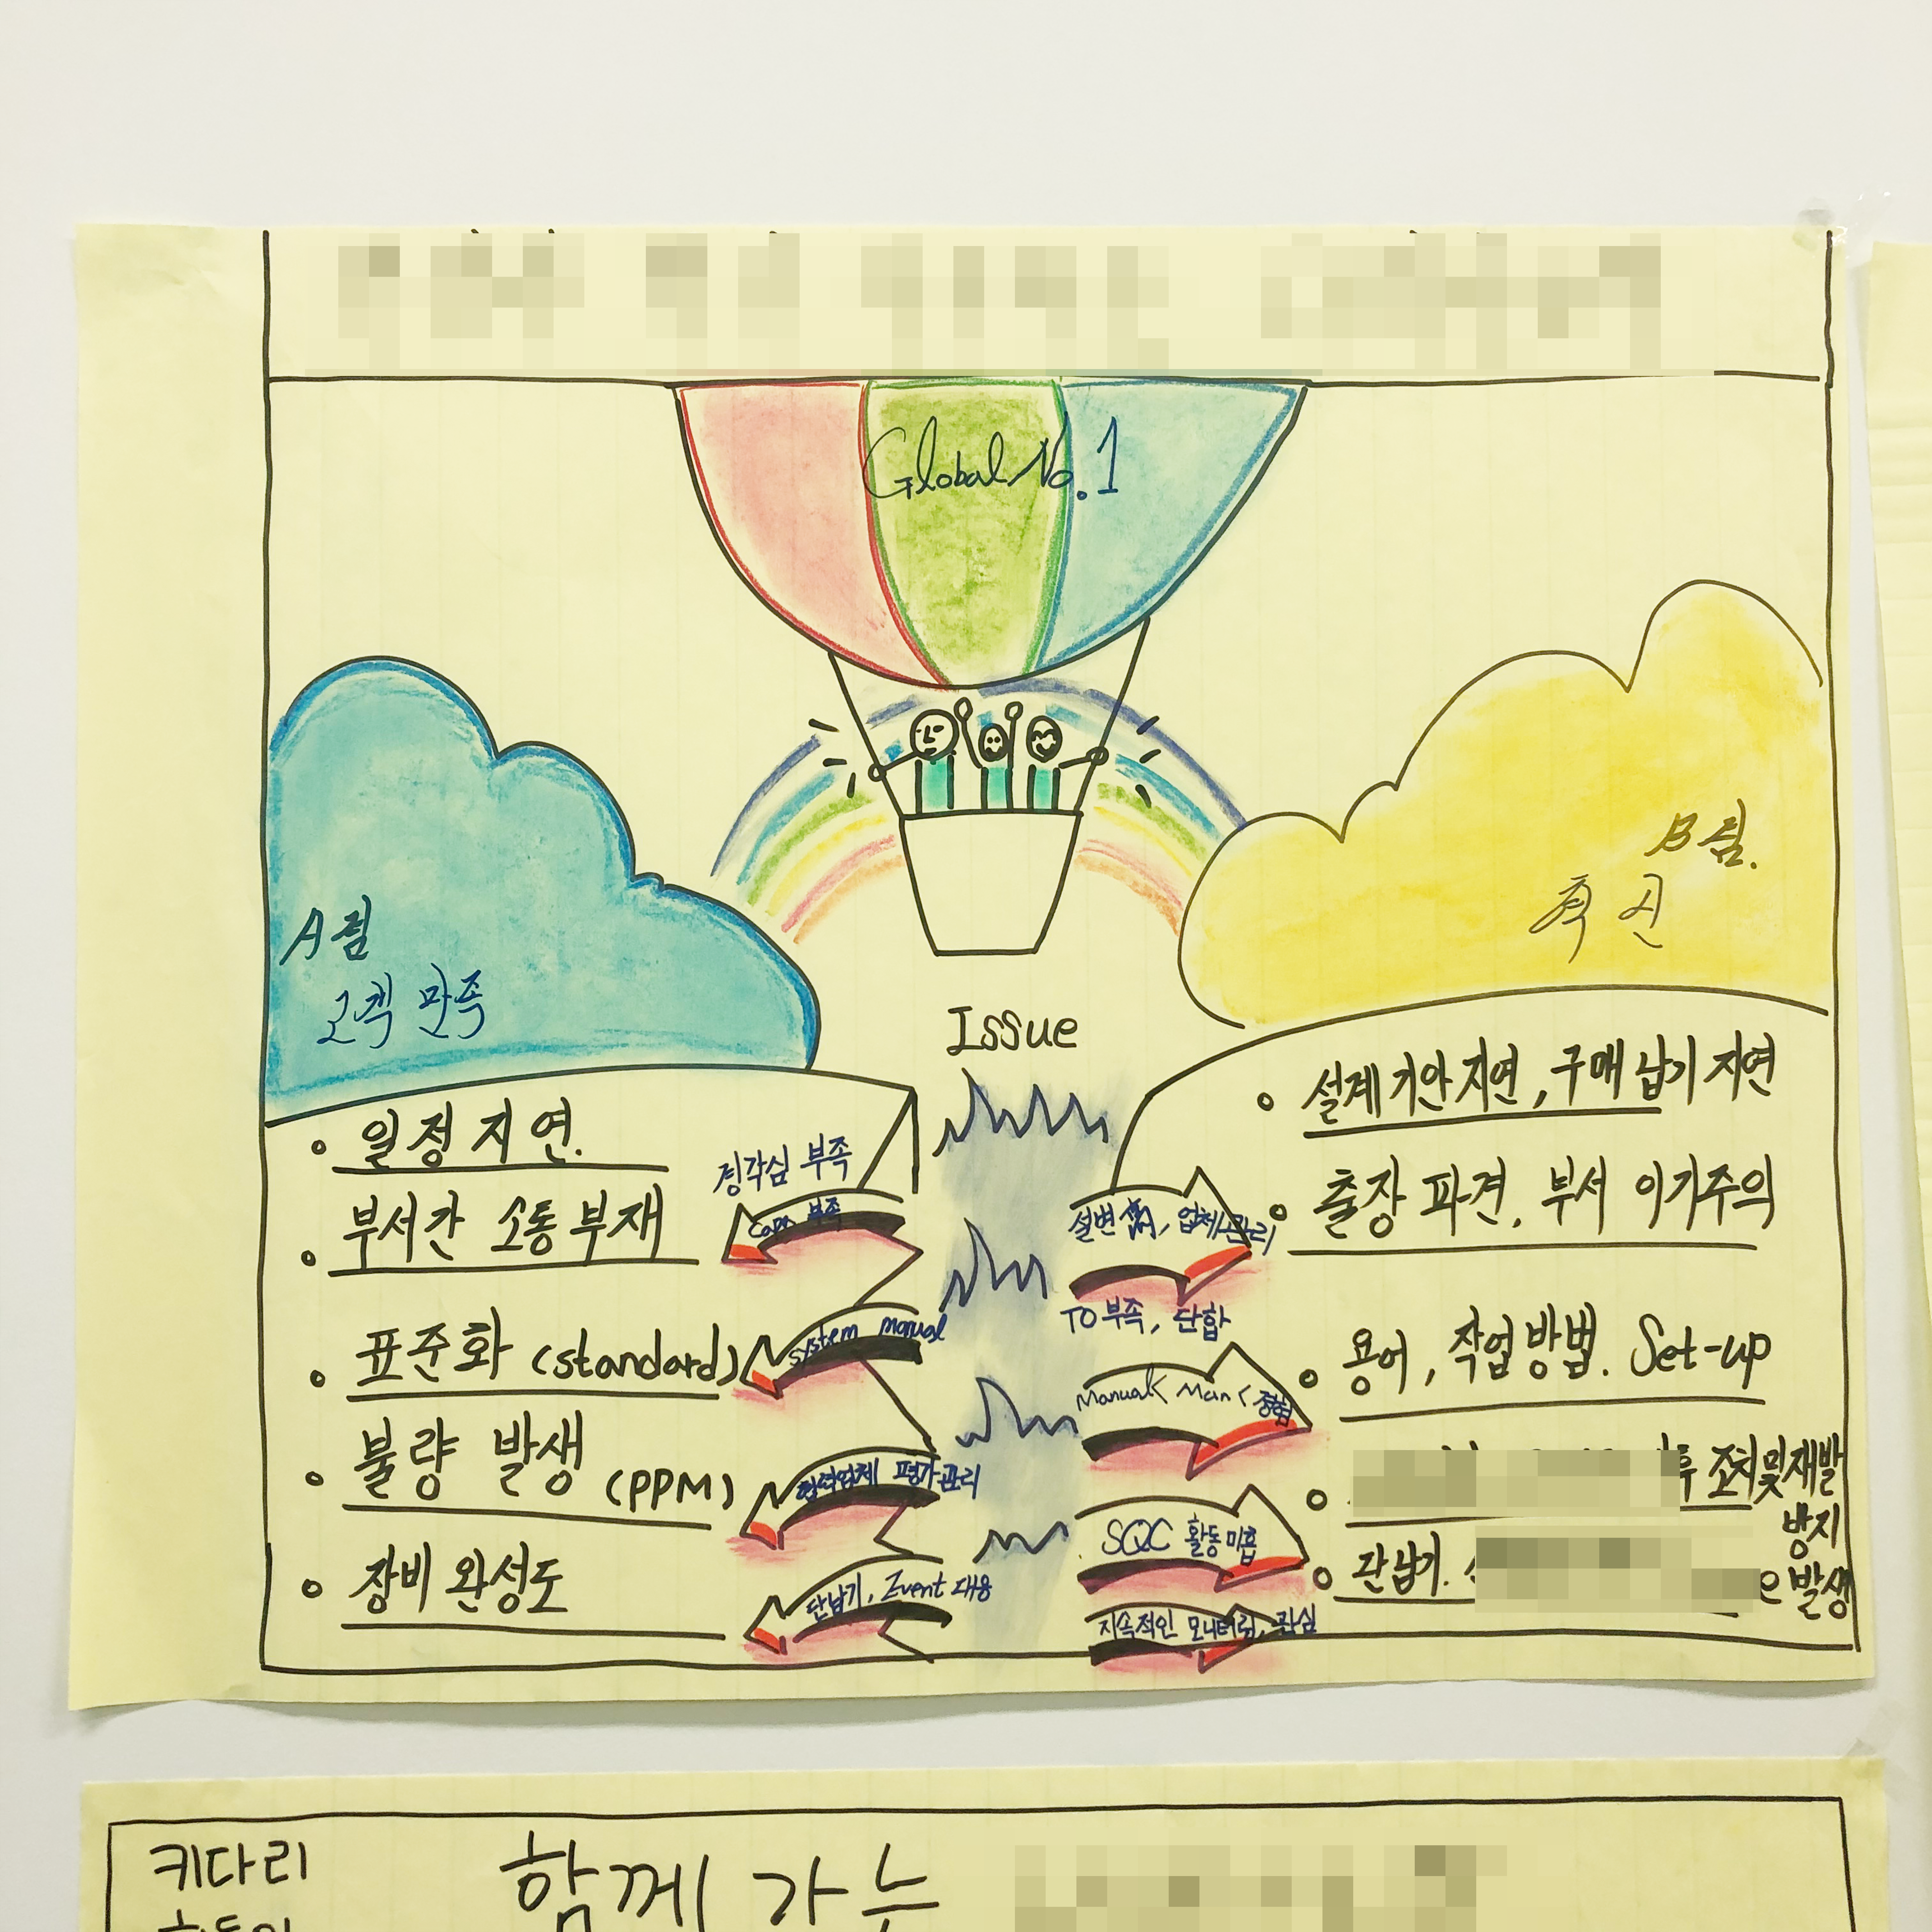 Global No.1
A팀
고객 만족
B팀.
혁신
Issue
일정 지연.
부서간 소통 부재
표준화 (standard)
불량 발생 (PPM)
장비 완성도
부족
부족
system manual
평가관리
단납기, Event 대응
설계 기안 지연, 구매 납기 지연
출장 파견, 부서 이기주의
용어, 작업방법. Set-up
조치및재발
방지
단납기.
발생
업체관리
TO부족, 단합
Manual< Man < 경험
SQC 활동미흡
지속적인 모니터링, 관심
키다리
함께 가는